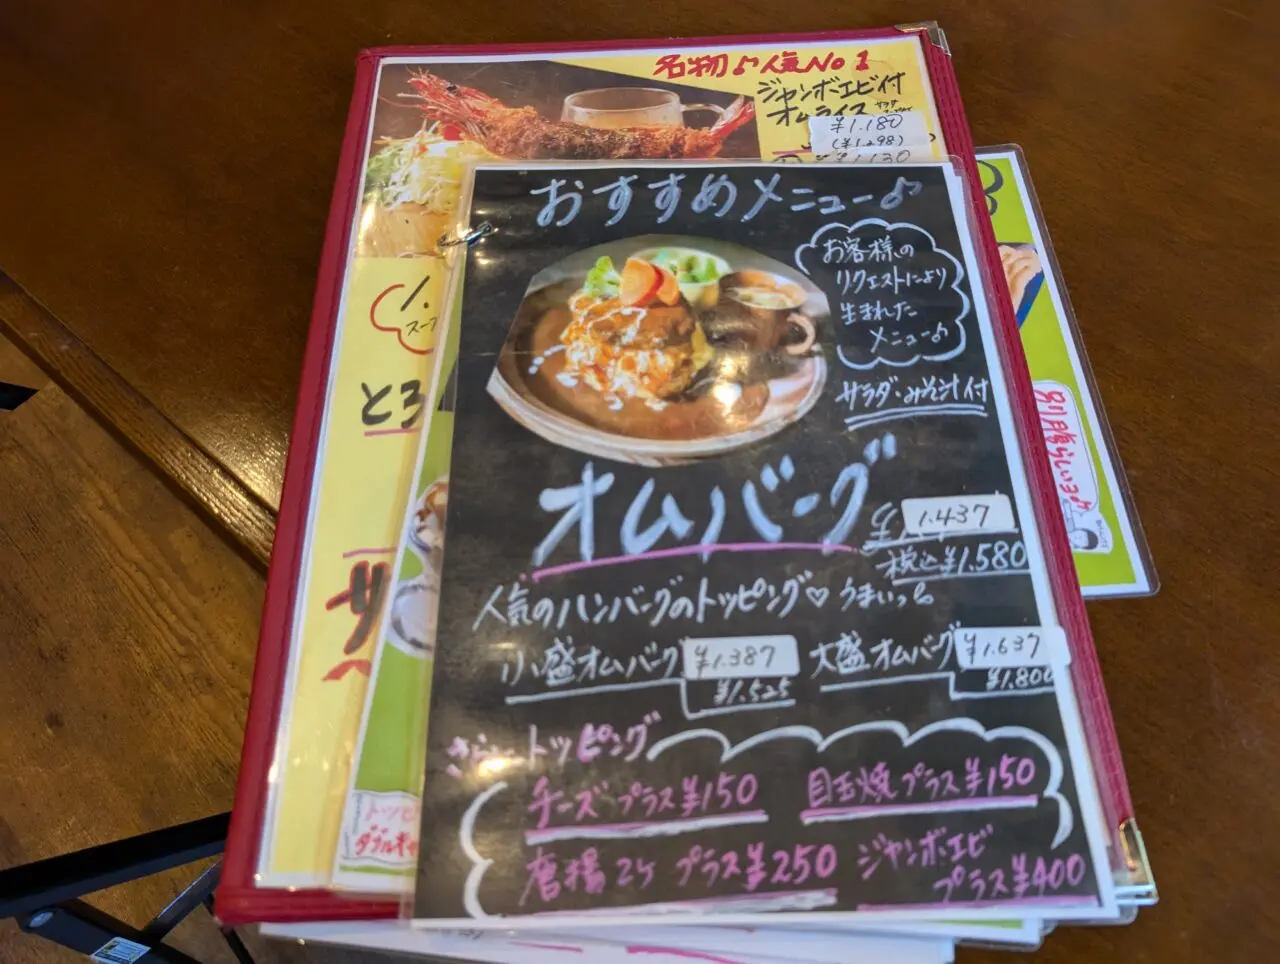 名物♪人気No1
ジャンボエビ付
オムライス
¥1.180
(¥1.298)
¥1,130
おすすめメニュー♪
お客様の
リクエストにより
生まれた
メニュー♪
サラダ・みそ汁付
オムバーグ
¥1.437
税込¥1.580
人気のハンバーグのトッピング♡うまいっ
小盛オムバーグ ¥1.387
¥1.525
大盛オムバーグ ¥1.637
¥1.800
さらにトッピング
チーズプラス¥150
目玉焼プラス¥150
唐揚2ケ プラス¥250
ジャンボエビ
プラス¥400
スープ
とろ
ダブル
別腹らしいヨ